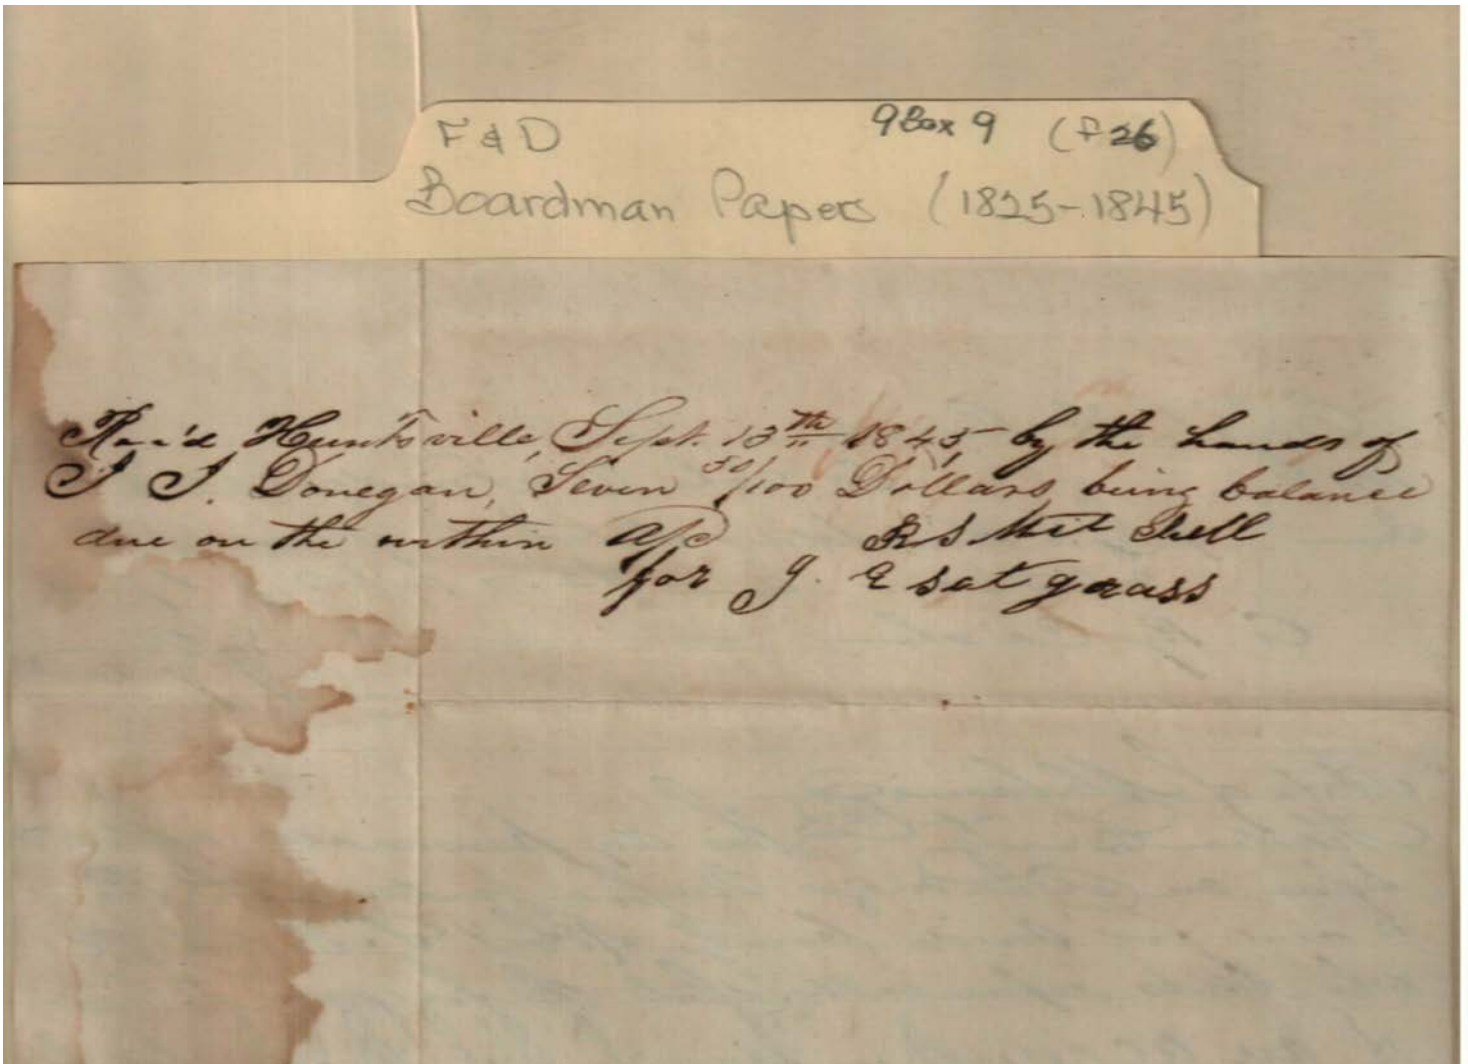 F & D 9 Box 9 (f 26)
Boardman Papers (1825-1845)
Rec'd Huntsville, Sept. 13th 1845 by the hands of
J J. Donegan, Seven 50/100 Dollars, being balance
due on the within a/c R S Mit chell
for J. E sat grass